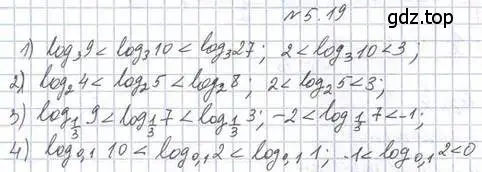 gdz.top
№5.19
1) log₃9 < log₃10 < log₃27; 2 < log₃10 < 3;
2) log₂4 < log₂5 < log₂8; 2 < log₂5 < 3;
3) log_{1/3} 9 < log_{1/3} 7 < log_{1/3} 3; -2 < log_{1/3} 7 < -1;
4) log₀,₁ 10 < log₀,₁ 2 < log₀,₁ 1; -1 < log₀,₁ 2 < 0
gdz.top